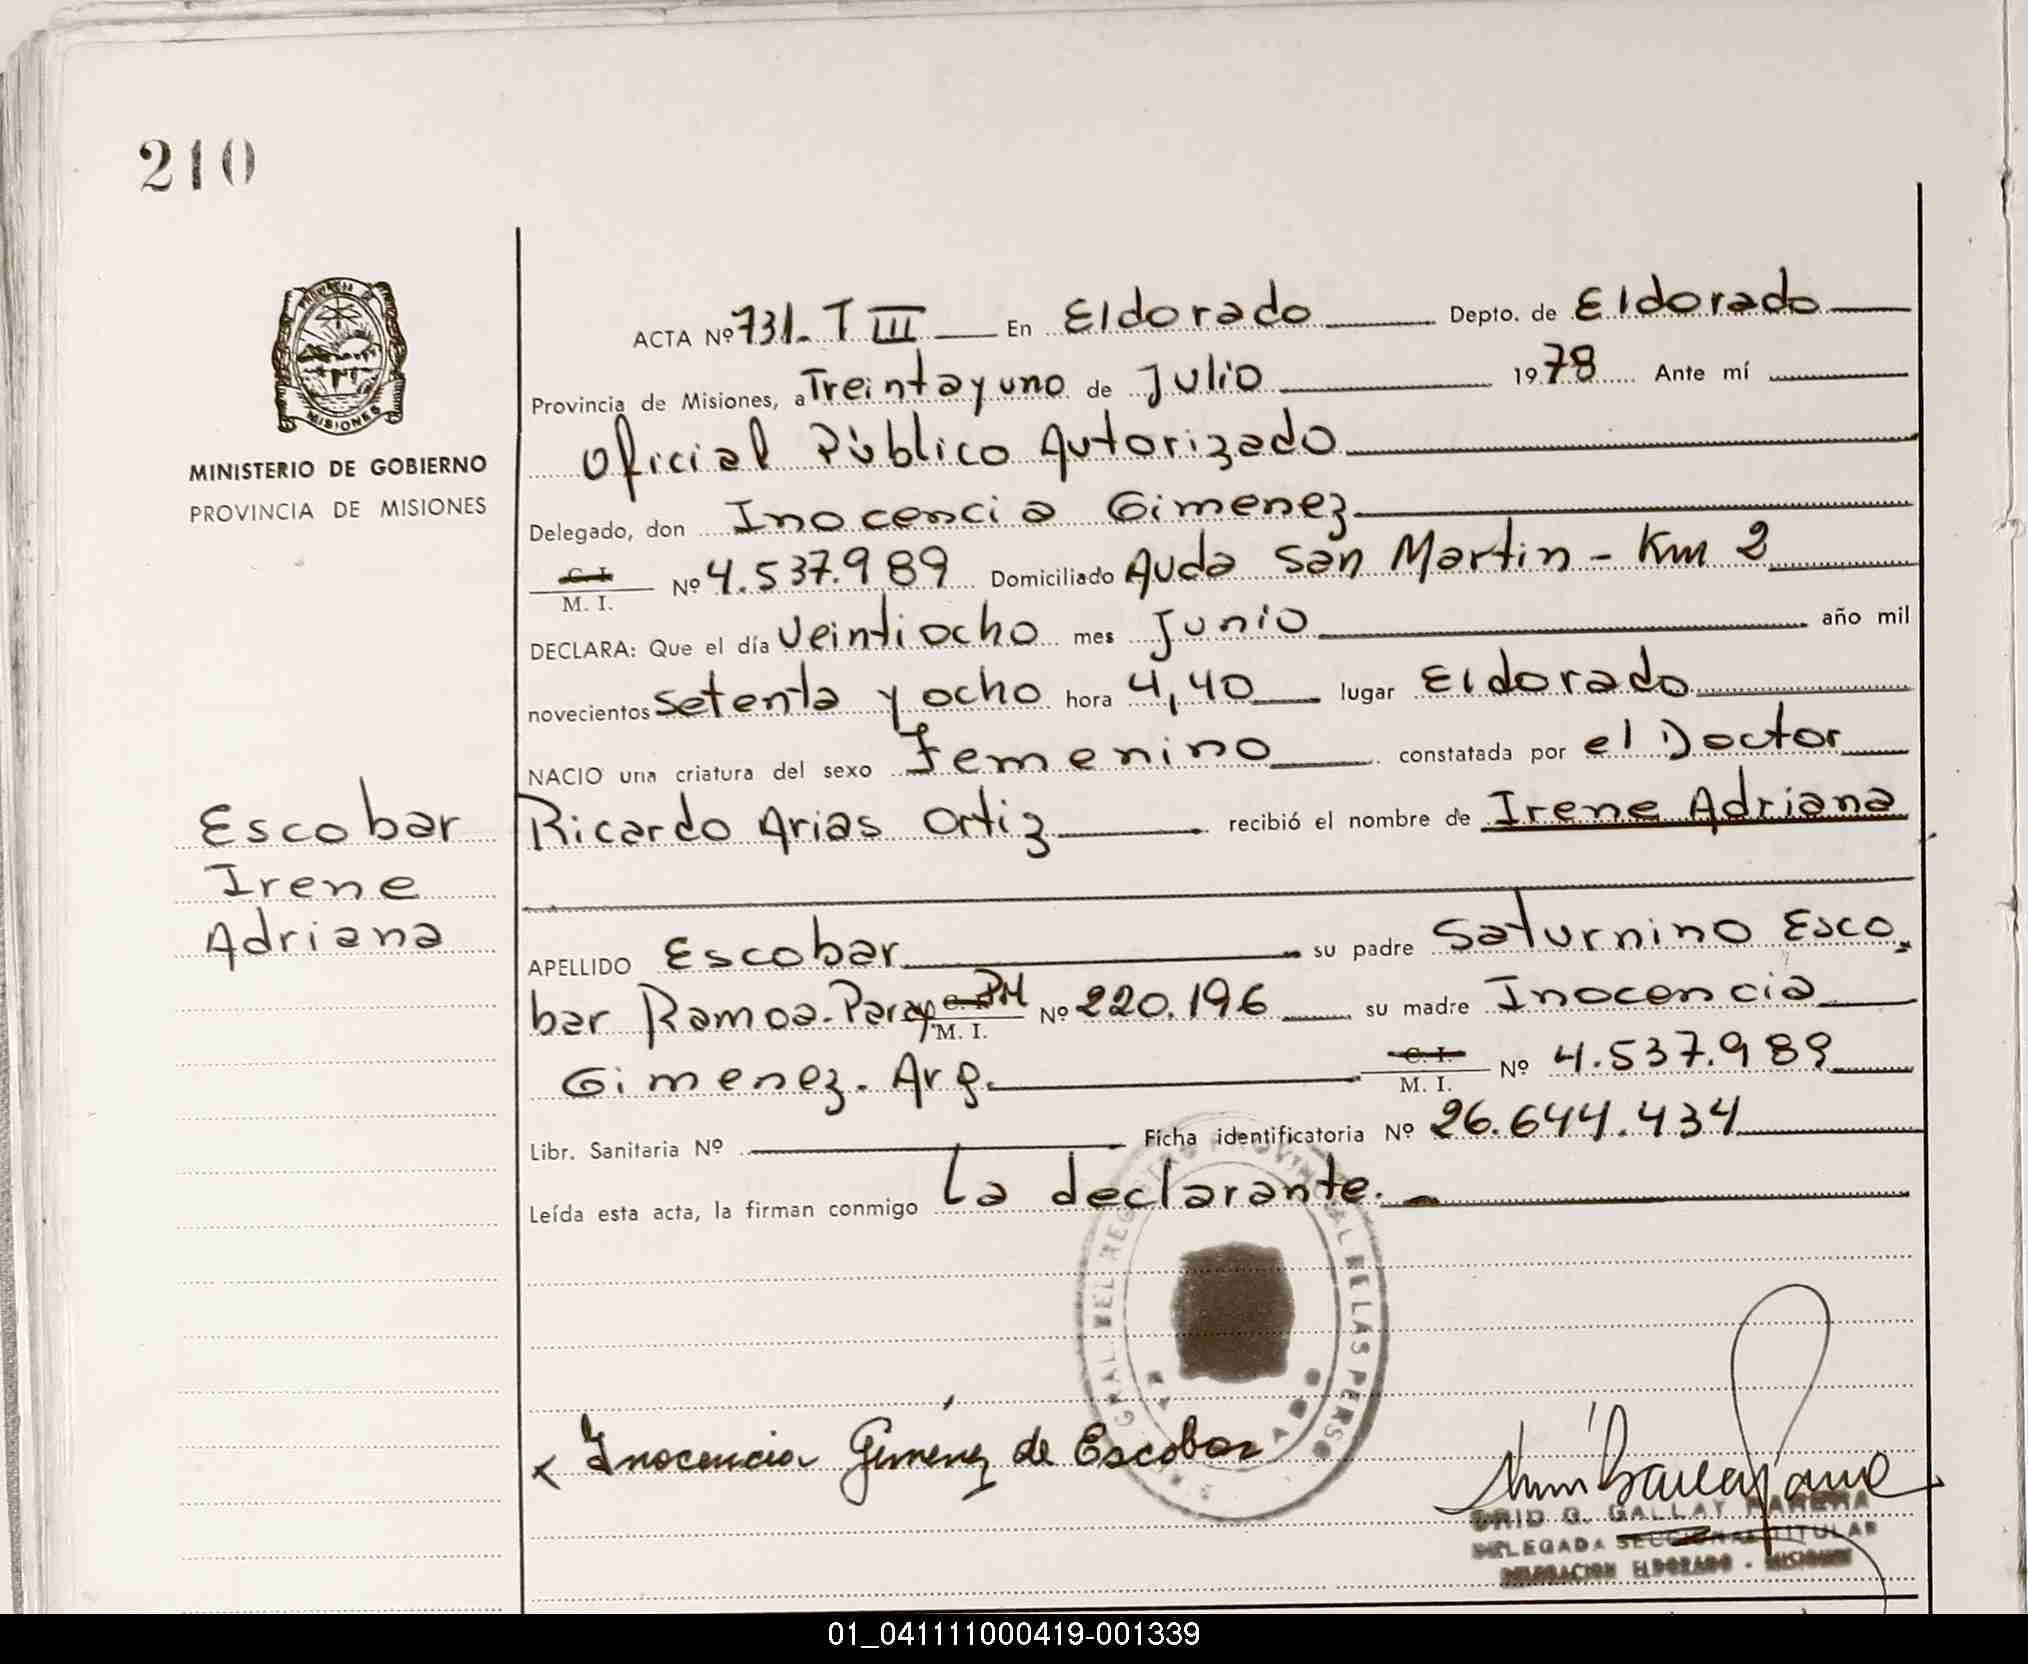 210
MISIONES
MINISTERIO DE GOBIERNO
PROVINCIA DE MISIONES
Escobar
Irene
Adriana
ACTA Nº 731. T III En Eldorado Depto. de Eldorado
Provincia de Misiones, a Treinta y uno de Julio 1978 Ante mí
Oficial Público Autorizado
Delegado, don Inocencia Gimenez
C. I. / M. I. Nº 4.537.989 Domiciliado Avda San Martin - Km 2
DECLARA: Que el día Veintiocho mes Junio año mil
novecientos setenta y ocho hora 4,40 lugar Eldorado
NACIO una criatura del sexo Femenino constatada por el Doctor
Ricardo Arias Ortiz recibió el nombre de Irene Adriana
APELLIDO Escobar su padre Saturnino Esco
bar Ramoa. Parag M. I. Nº 220.196 su madre Inocencia
Gimenez. Arg. C. I. / M. I. Nº 4.537.989
Libr. Sanitaria Nº Ficha identificatoria Nº 26.644.434
Leída esta acta, la firman conmigo La declarante.
GRAL. DEL REGISTRO PROVINCIAL DE LAS PERSO
Inocencia Giménez de Escobar
G. GALLAY
DELEGADA SECCIONAL TITULAR
DELEGACION ELDORADO - MISIONES
01_041111000419-001339